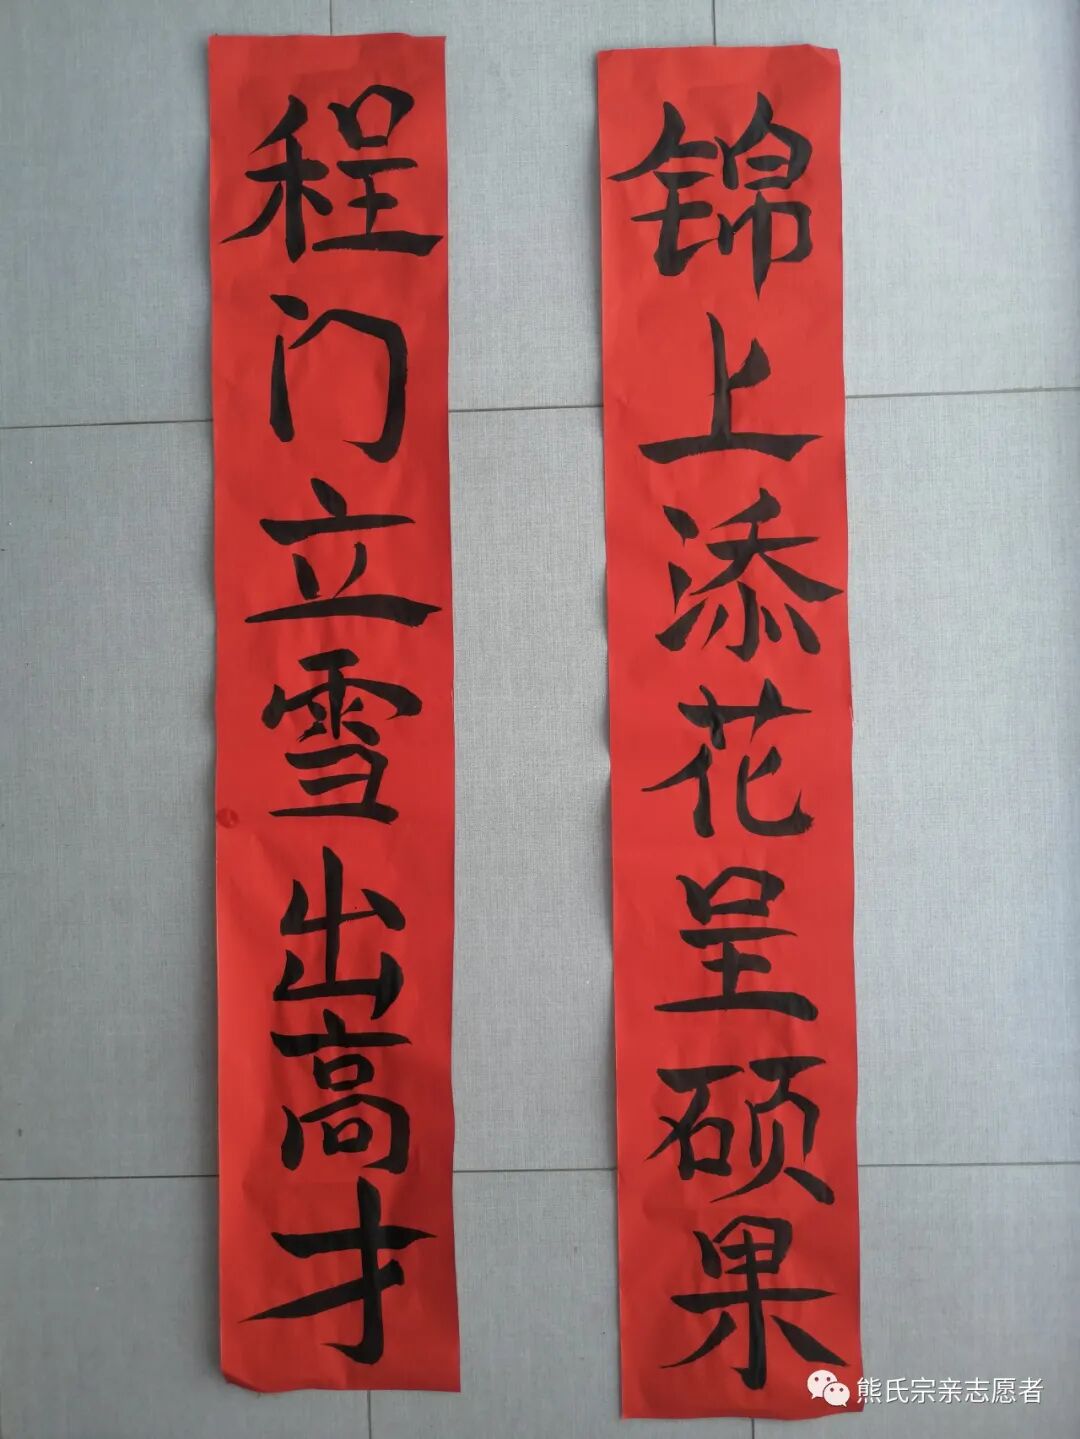 锦上添花呈硕果
程门立雪出高才
熊氏宗亲志愿者